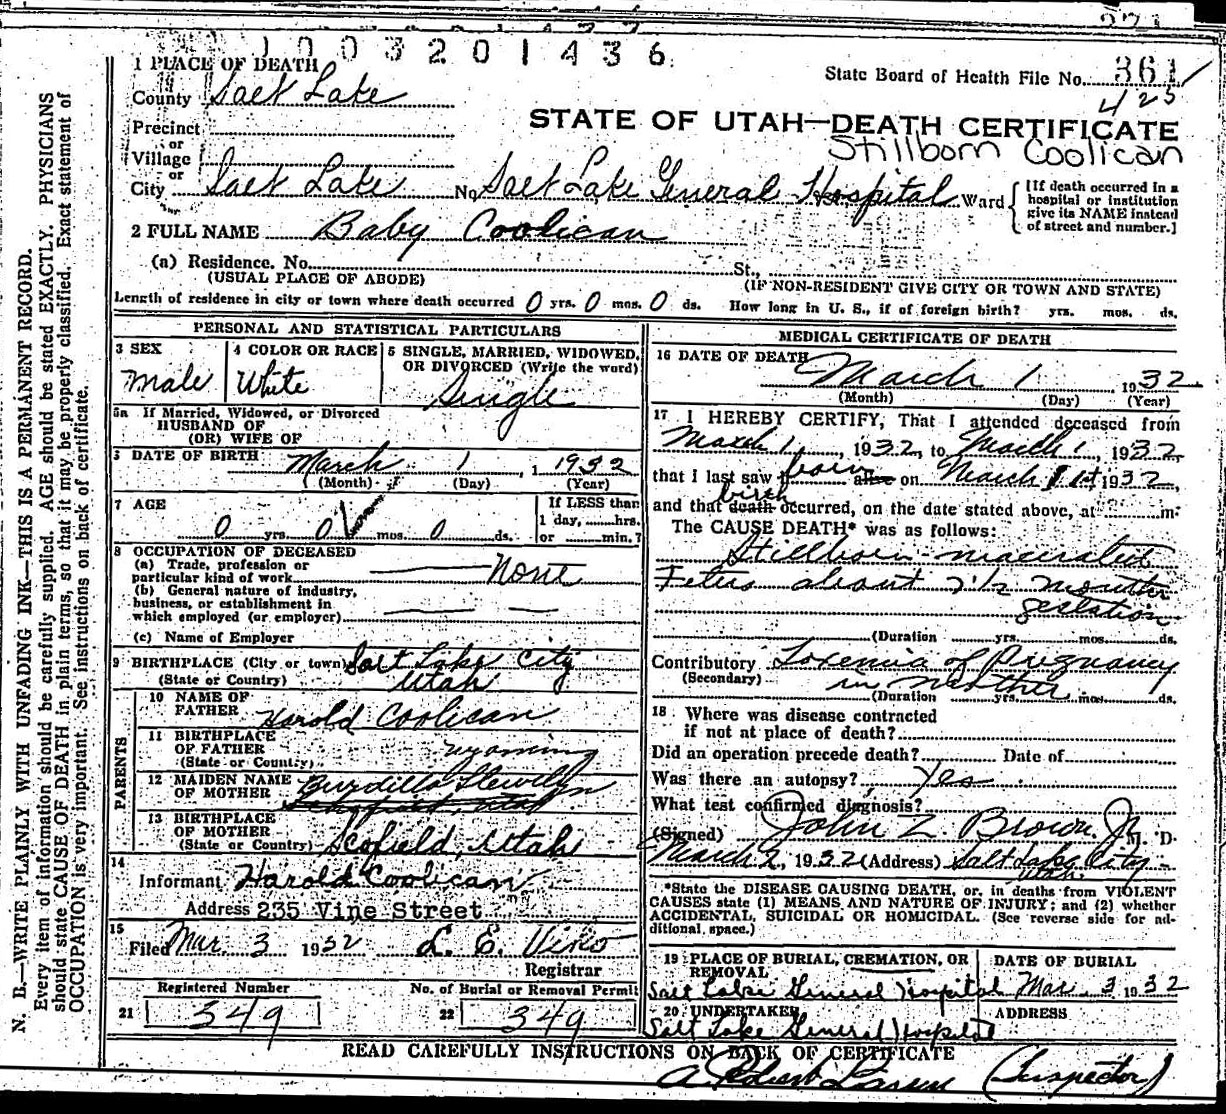 1003201436
1 PLACE OF DEATH
State Board of Health File No. 361
425
County Salt Lake
STATE OF UTAH—DEATH CERTIFICATE
Stillborn Coolican
Precinct
or
Village
or
City Salt Lake No. Salt Lake General Hospital Ward
[If death occurred in a
hospital or institution
give its NAME instead
of street and number.]
2 FULL NAME Baby Coolican
(a) Residence. No. St.,
(USUAL PLACE OF ABODE) (IF NON-RESIDENT GIVE CITY OR TOWN AND STATE)
Length of residence in city or town where death occurred 0 yrs. 0 mos. 0 ds. How long in U. S., if of foreign birth? yrs. mos. ds.
PERSONAL AND STATISTICAL PARTICULARS
3 SEX
Male
4 COLOR OR RACE
White
5 SINGLE, MARRIED, WIDOWED,
OR DIVORCED (Write the word)
Single
5a If Married, Widowed, or Divorced
HUSBAND OF
(OR) WIFE OF
6 DATE OF BIRTH March 1 1932
(Month) (Day) (Year)
7 AGE
0 yrs. 0 mos. 0 ds.
If LESS than
1 day, hrs.
or min.?
8 OCCUPATION OF DECEASED
(a) Trade, profession or
particular kind of work None
(b) General nature of industry,
business, or establishment in
which employed (or employer)
(c) Name of Employer
9 BIRTHPLACE (City or town) Salt Lake City
(State or Country) Utah
PARENTS
10 NAME OF
FATHER Harold Coolican
11 BIRTHPLACE
OF FATHER Wyoming
(State or Country)
12 MAIDEN NAME
OF MOTHER Burdilla Llewellyn
Schofield, Utah
13 BIRTHPLACE
OF MOTHER
(State or Country) Scofield, Utah
14
Informant Harold Coolican
Address 235 Vine Street
15
Filed Mar 3 1932 L. E. Viko
Registrar
Registered Number
21 349
No. of Burial or Removal Permit
22 349
MEDICAL CERTIFICATE OF DEATH
16 DATE OF DEATH
March 1 1932
(Month) (Day) (Year)
17 I HEREBY CERTIFY, That I attended deceased from
March 1, 1932, to March 1, 1932,
that I last saw h born alive on March 1st 1932,
birth
and that death occurred, on the date stated above, at m.
The CAUSE DEATH* was as follows:
Stillborn - macerated
Fetus about 7 1/2 months
gestation
(Duration yrs. mos. ds.
Contributory Toxemia of Pregnancy
(Secondary) in mother
(Duration yrs. mos. ds.
18 Where was disease contracted
if not at place of death?
Did an operation precede death? Date of
Was there an autopsy? Yes
What test confirmed diagnosis?
(Signed) John Z. Brown, Jr. M. D.
March 2, 1932 (Address) Salt Lake City
Utah.
*State the DISEASE CAUSING DEATH, or, in deaths from VIOLENT
CAUSES state (1) MEANS AND NATURE OF INJURY; and (2) whether
ACCIDENTAL, SUICIDAL OR HOMICIDAL. (See reverse side for ad-
ditional space.)
19 PLACE OF BURIAL, CREMATION, OR
REMOVAL
Salt Lake General Hospital
DATE OF BURIAL
Mar. 3 1932
20 UNDERTAKER
Salt Lake General Hospital
ADDRESS
READ CAREFULLY INSTRUCTIONS ON BACK OF CERTIFICATE
A. Robert Larsen (Inspector)
N. B.—WRITE PLAINLY WITH UNFADING INK—THIS IS A PERMANENT RECORD.
Every item of information should be carefully supplied. AGE should be stated EXACTLY. PHYSICIANS
should state CAUSE OF DEATH in plain terms, so that it may be properly classified. Exact statement of
OCCUPATION is very important. See instructions on back of certificate.